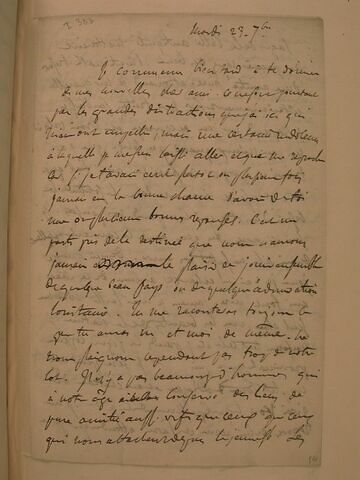 Mardi 23 7bre
Je commence bien tard à te donner
de mes nouvelles cher ami. Ce n'est pourtant
pas les grandes distractions que j'ai ici qui
m'en ont empêché, mais une certaine indolence
à laquelle je me suis laissé aller et que je me reproche
si je t'avais écrit
j'aurais eu la bonne chance d'avoir de toi
une ou plusieurs bonnes réponses. C'est un
parti pris de la destinée que nous n'aurons
jamais le plaisir de jouir ensemble
de quelque beau pays ou de quelque admiration
lointaine. Tu me raconteras toujours ce
que tu auras vu et moi de même. Ne
nous plaignons cependant pas trop de notre
lot. Il n'y a pas beaucoup d'hommes qui
à notre âge aient conservé des liens de
pure amitié aussi vifs que ceux
qui nous attachent depuis la jeunesse. Les